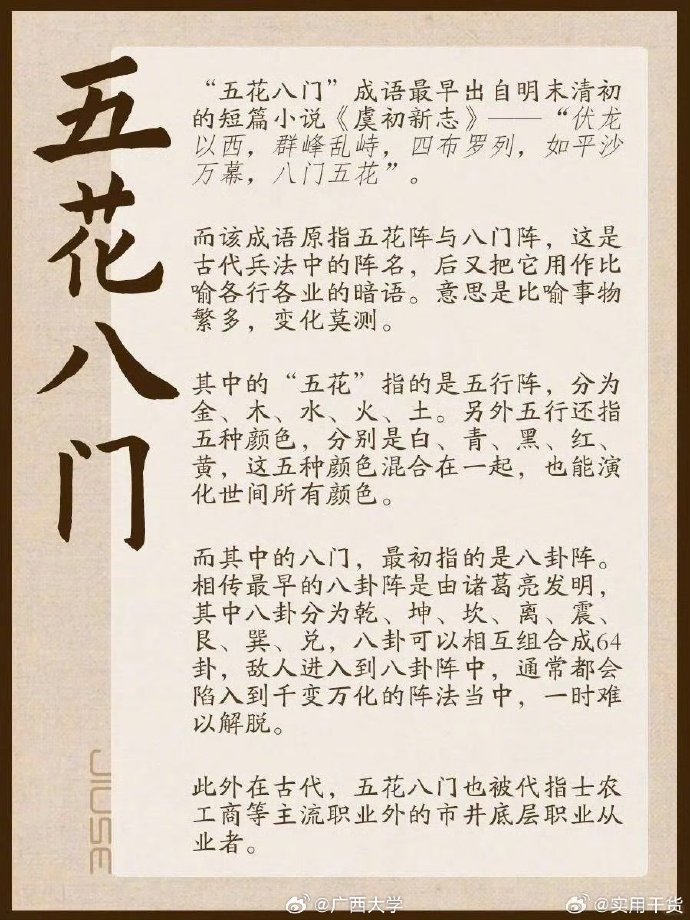 五花八门
“五花八门”成语最早出自明末清初
的短篇小说《虞初新志》——“伏龙
以西，群峰乱峙，四布罗列，如平沙
万幕，八门五花”。
而该成语原指五花阵与八门阵，这是
古代兵法中的阵名，后又把它用作比
喻各行各业的暗语。意思是比喻事物
繁多，变化莫测。
其中的“五花”指的是五行阵，分为
金、木、水、火、土。另外五行还指
五种颜色，分别是白、青、黑、红、
黄，这五种颜色混合在一起，也能演
化世间所有颜色。
而其中的八门，最初指的是八卦阵。
相传最早的八卦阵是由诸葛亮发明，
其中八卦分为乾、坤、坎、离、震、
艮、巽、兑，八卦可以相互组合成64
卦，敌人进入到八卦阵中，通常都会
陷入到千变万化的阵法当中，一时难
以解脱。
此外在古代，五花八门也被代指士农
工商等主流职业外的市井底层职业从
业者。
JIUSE
@广西大学
@实用干货